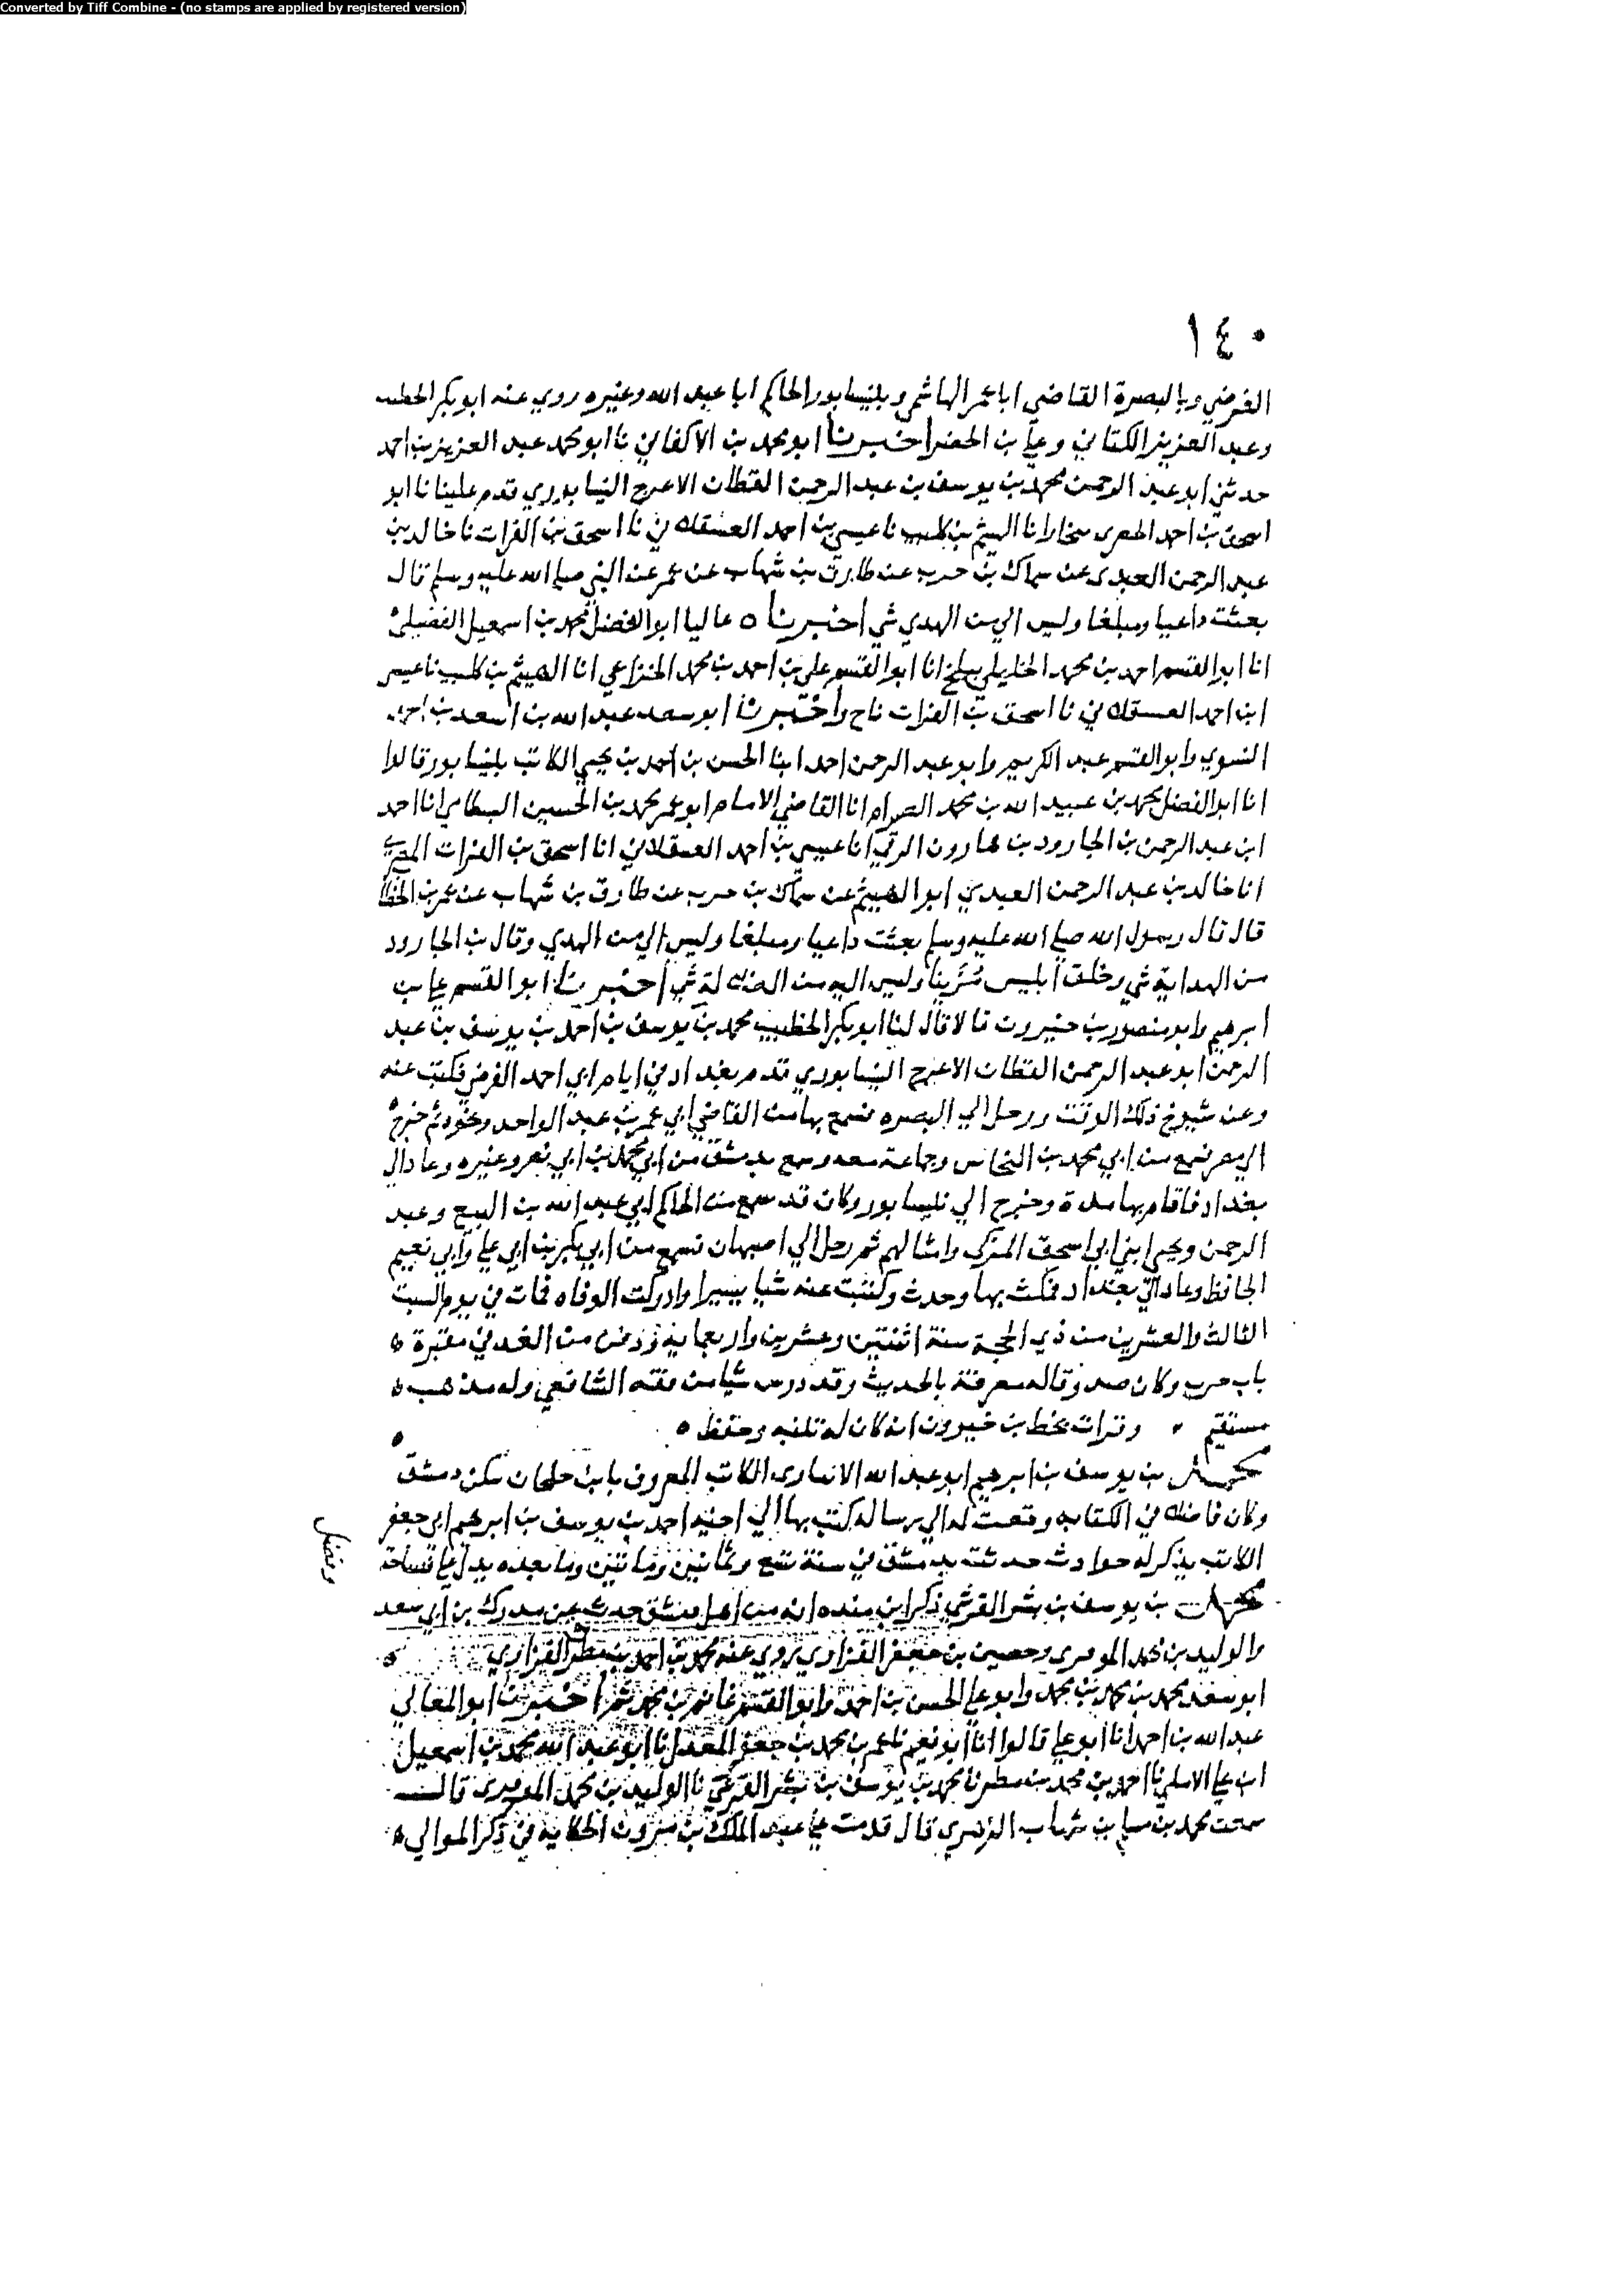 Converted by Tiff Combine - (no stamps are applied by registered version)
١٤٠
الفرضي وبالبصرة القاضي ابا عمر الهاشمي وبنيسابور الحاكم ابا عبد الله وغيره روي عنه ابو بكر الخطيب
وعبد العزيز الكتاني وعلي بن الخضر اخبرنا ابو محمد بن الاكفاني نا ابو محمد عبد العزيز بن احمد
حدثني ابو عبد الرحمن محمد بن يوسف بن عبد الرحمن القطان الاعرج النيسابوري قدم علينا نا ابو
اسحق بن احمد المصري ببخارا نا الهيثم بن كليب نا عيسى بن احمد العسقلاني نا اسحق بن الفرات نا خالد بن
عبد الرحمن العبدي عن سماك بن حرب عن طارق بن شهاب عن عمر عن النبي صلى الله عليه وسلم قال
بعثت داعيا ومبلغا وليس الي من الهدي شي اخبرنا ه عاليا ابو الفضل محمد بن اسمعيل الفضيلي
انا ابو القسم احمد بن محمد الخليلي ببلخ انا ابو القسم علي بن احمد بن محمد الخزاعي انا الهيثم بن كليب نا عيسى
ابن احمد العسقلاني نا اسحق بن الفرات نا ح واخبرنا ابو سعد عبد الله بن اسعد بن احمد
النسوي وابو القسم عبد الكريم وابو عبد الرحمن احمد ابنا الحسن بن احمد بن يحيي الكاتب بنيسابور قالوا
انا ابو الفضل محمد بن عبيد الله بن محمد الصرام انا القاضي الامام ابو عمر محمد بن الحسين البسطامي انا احمد
ابن عبد الرحمن بن الجارود بن هارون الرقي انا عيسى بن احمد العسقلاني انا اسحق بن الفرات المصري
انا خالد بن عبد الرحمن العبدي ابو الهيثم عن سماك بن حرب عن طارق بن شهاب عن عمر بن الخطاب
قال قال رسول الله صلى الله عليه وسلم بعثت داعيا ومبلغا وليس الي من الهدي وقال بن الجارود
من الهداية شي وخلق ابليس مُزَيِّنا وليس اليه من الضلالة شي اخبرنا ابو القسم علي بن
ابرهيم وابو منصور بن خيرون قالا قال لنا ابو بكر الخطيب محمد بن يوسف بن احمد بن يوسف بن عبد
الرحمن ابو عبد الرحمن القطان الاعرج النيسابوري قدم بغداد في ايام ابي احمد الفرضي فكتب عنه
وعن شيوخ ذلك الوقت ورحل الي البصره فسمع بها من القاضي ابي عمر بن عبد الواحد ونحوه ثم خرج
الي مصر فسمع من ابي محمد بن النحاس وجماعة معه وسمع بدمشق من ابي محمد بن ابي نصر وغيره وعاد الي
بغداد فاقام بها مدة وخرج الي نيسابور وكان قد سمع من الحاكم ابي عبد الله بن البيع وعبد
الرحمن ويحيى ابني ابي اسحق المزكي وامثالهم ثم رحل الي اصبهان فسمع من ابي بكر بن ابي علي وابي نعيم
الحافظ وعاد الي بغداد فمكث بها وحدث وكتبت عنه شيا يسيرا وادركته الوفاه فمات في يوم السبت
الثالث والعشرين من ذي الحجة سنة اثنتين وعشرين واربعماية ودفن من الغد في مقبرة ه
باب حرب وكان صدوقا له معرفة بالحديث وقد درس شيا من فقه الشافعي وله مذهب ه
مستقيم ه وقرات بخط بن خيرون انه كان له تلقيه وحفظ ه
محمد بن يوسف بن ابرهيم ابو عبد الله الانصاري الكاتب المعروف بابن حلحان سكن دمشق
وكان فاضلا في الكتابه وقعت له الي رساله كتب بها الي اخيه احمد بن يوسف بن ابرهيم ابي جعفر
الكاتب يذكر له حوادث حدثت بدمشق في سنة تسع وثمانين ومائتين وما بعده يدل علي فصاحة
وفضل
محمد بن يوسف بن بشر القرشي ذكر ابن منده انه من اهل دمشق حدث عن مدرك بن ابي سعد
والوليد بن محمد الموقري وحصين بن جعفر الفزاري روي عنه محمد بن احمد بن مطر الفزاري ه
ابو سعد محمد بن محمد بن محمد وابو علي الحسن بن احمد وابو القسم غانم بن محمد ثم اخبرنا ابو المعالي
عبد الله بن احمد انا ابو علي قالوا انا ابو نعيم نا عمر بن محمد بن جعفر المعدل نا ابو عبد الله محمد بن اسمعيل
ابن علي الايلي نا احمد بن محمد بن مطر نا محمد بن يوسف بن بشر القرشي نا الوليد بن محمد الموقري قال
سمعت محمد بن مسلم بن شهاب الزهري قال قدمت علي عبد الملك بن مروان الحكاية في ذكر الموالي ه